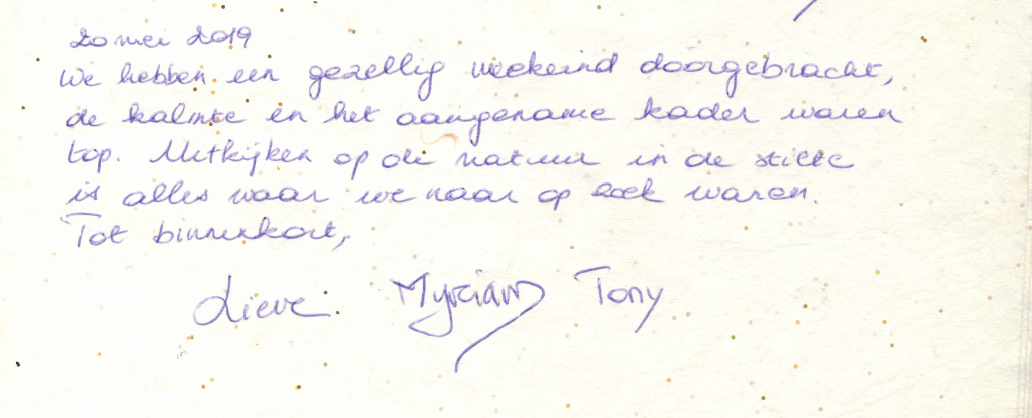 20 mei 2019
We hebben een gezellig weekeind doorgebracht,
de kalmte en het aangename kader waren
top. Uitkijken op de natuur in de stilte
is alles waar we naar op zoek waren.
Tot binnenkort,
Lieve Myriam Tony